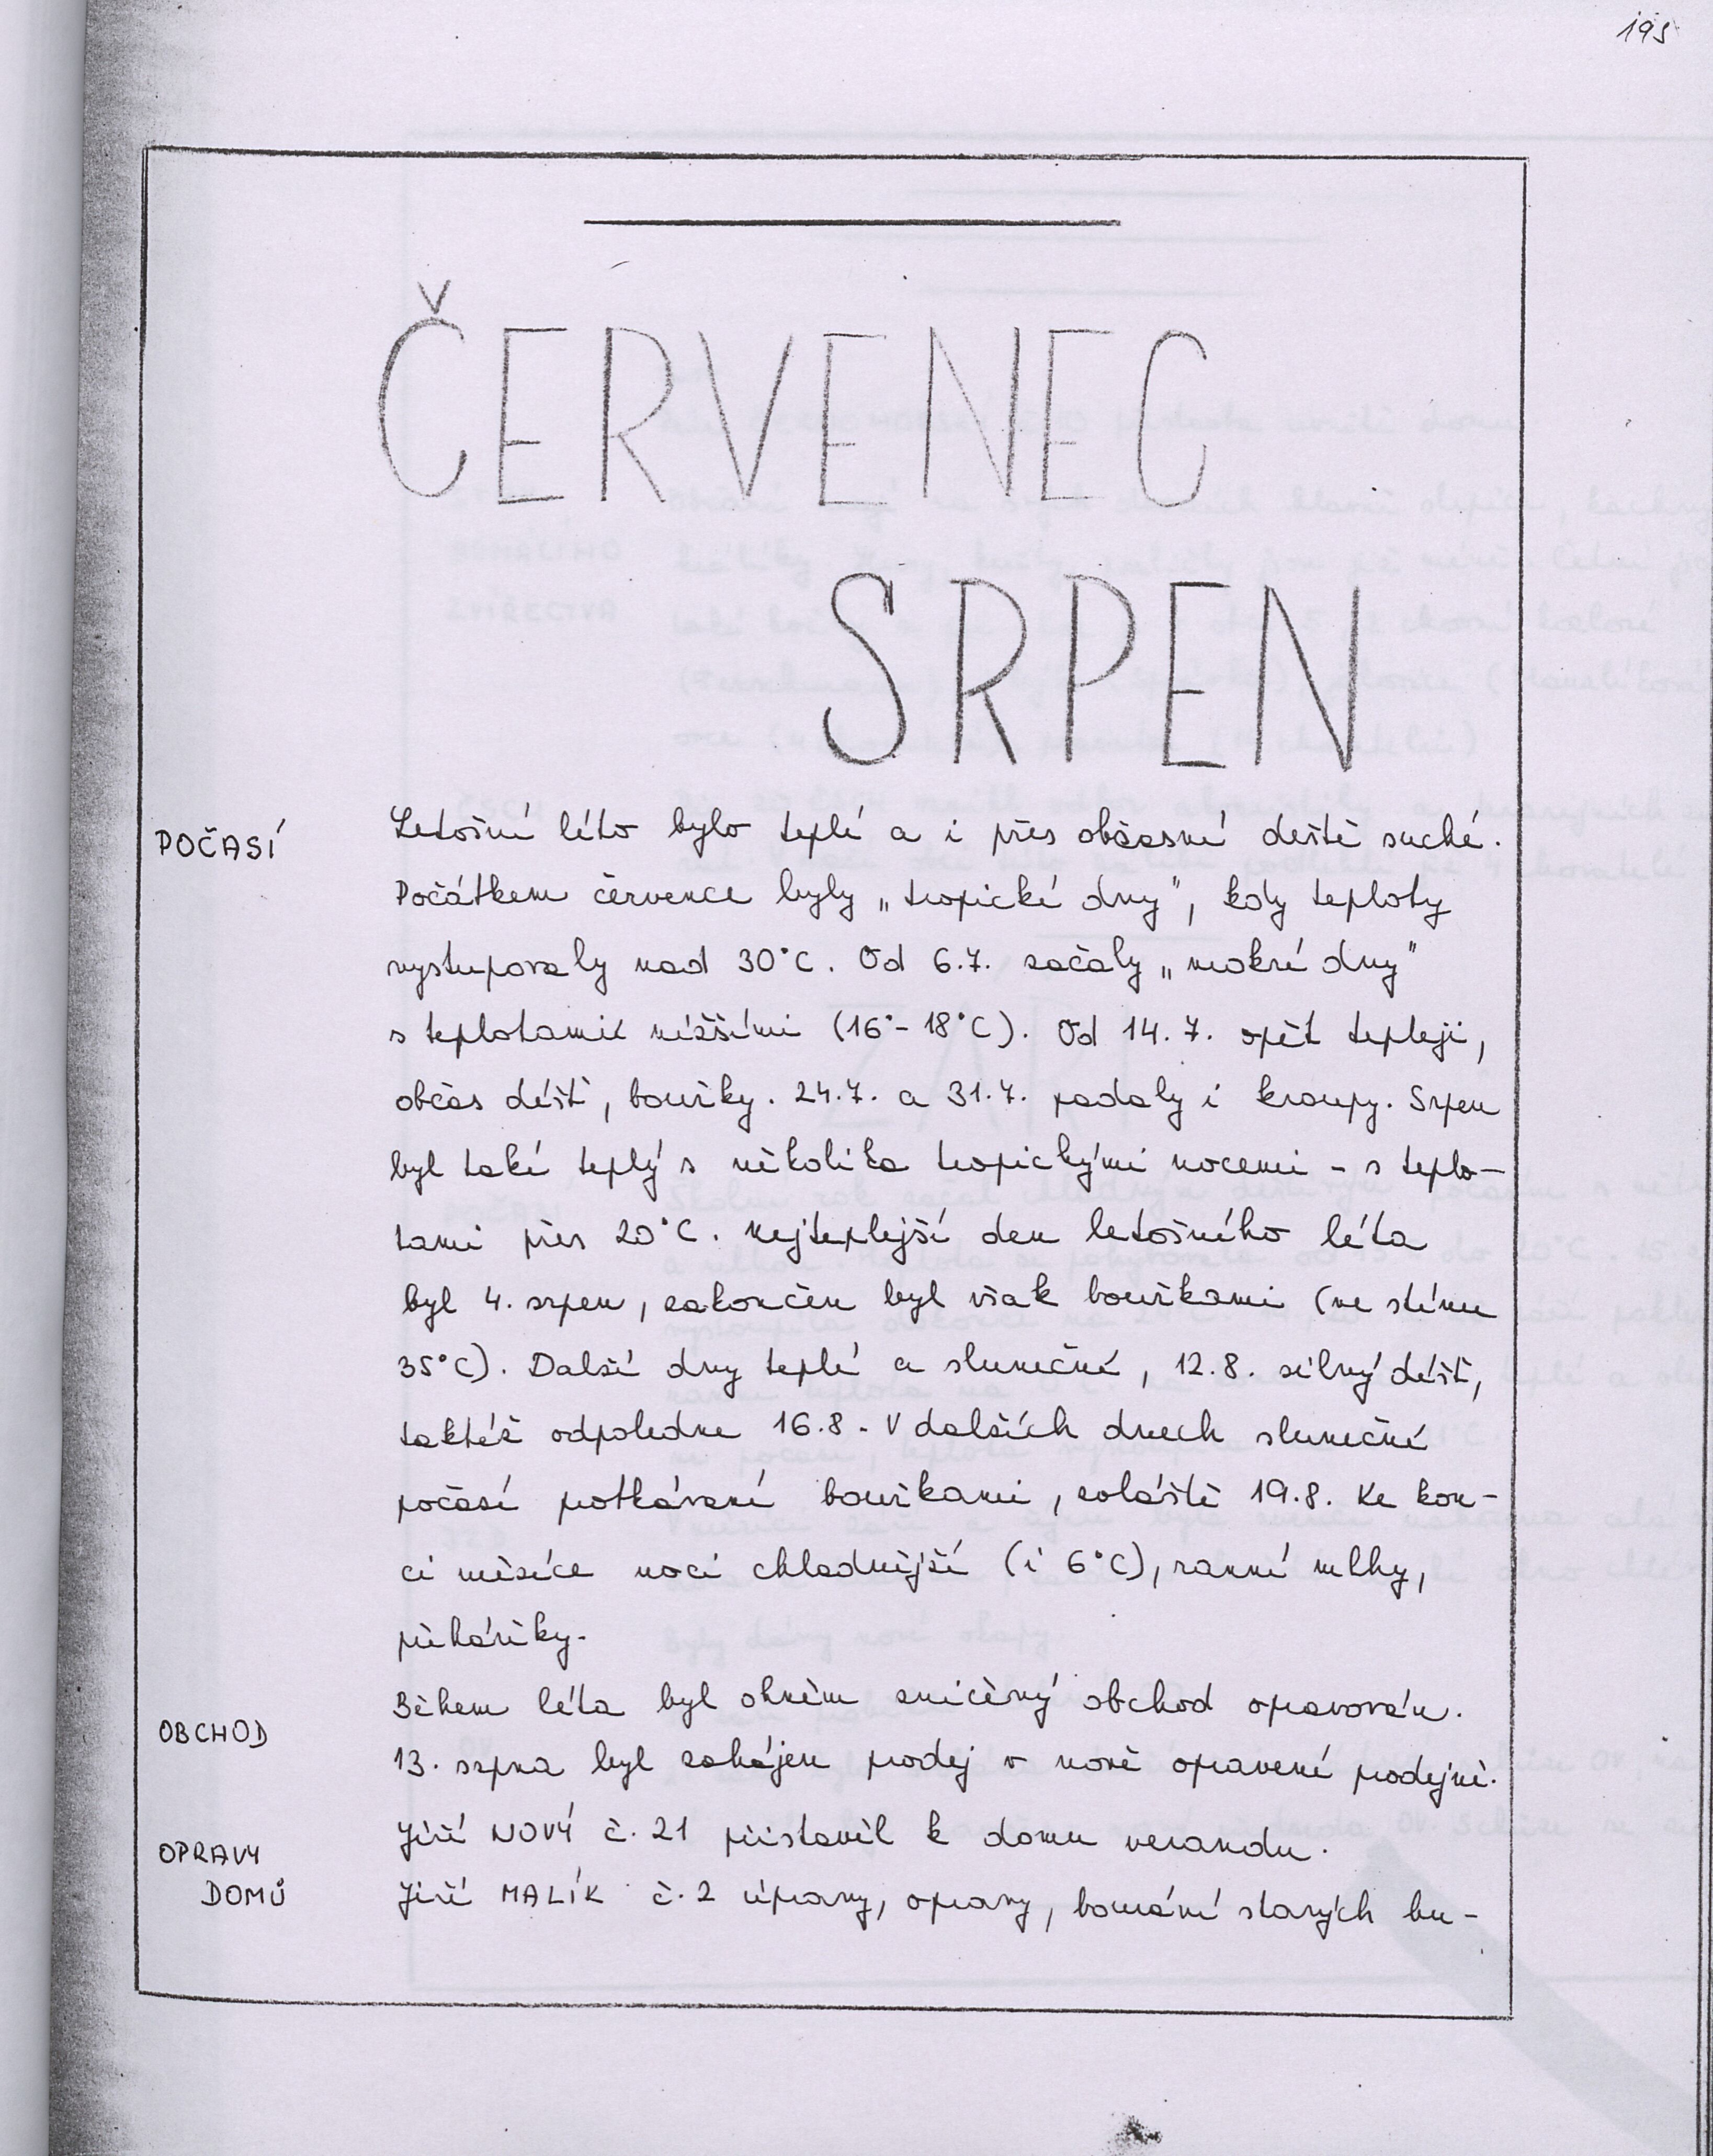 195
ČERVENEC
SRPEN
POČASÍ
Letošní léto bylo teplé a i přes občasné deště suché.
Počátkem července byly „tropické dny", kdy teploty
vystupovaly nad 30°C. Od 6.7. začaly „mokré dny"
s teplotami nižšími (16°- 18°C). Od 14.7. opět tepleji,
občas déšť, bouřky. 24.7. a 31.7. padaly i kroupy. Srpen
byl také teplý s několika tropickými nocemi - s teplo-
tami přes 20°C. Nejteplejší den letošného léta
byl 4. srpen, zakončen byl však bouřkami (ve stínu
35°C). Další dny teplé a slunečné, 12.8. silný déšť,
taktéž odpoledne 16.8. V dalších dnech slunečné
počasí protkávané bouřkami, zvláště 19.8. Ke kon-
ci měsíce noci chladnější (i 6°C), ranní mlhy,
přeháňky.
OBCHOD
Během léta byl ohněm zničený obchod opravován.
13. srpna byl zahájen prodej v nově opravené prodejně.
OPRAVY
DOMŮ
Jiří NOVÝ č. 21 přistavil k domu verandu.
Jiří MALÍK č. 2 úpravy, opravy, bourání starých bu-